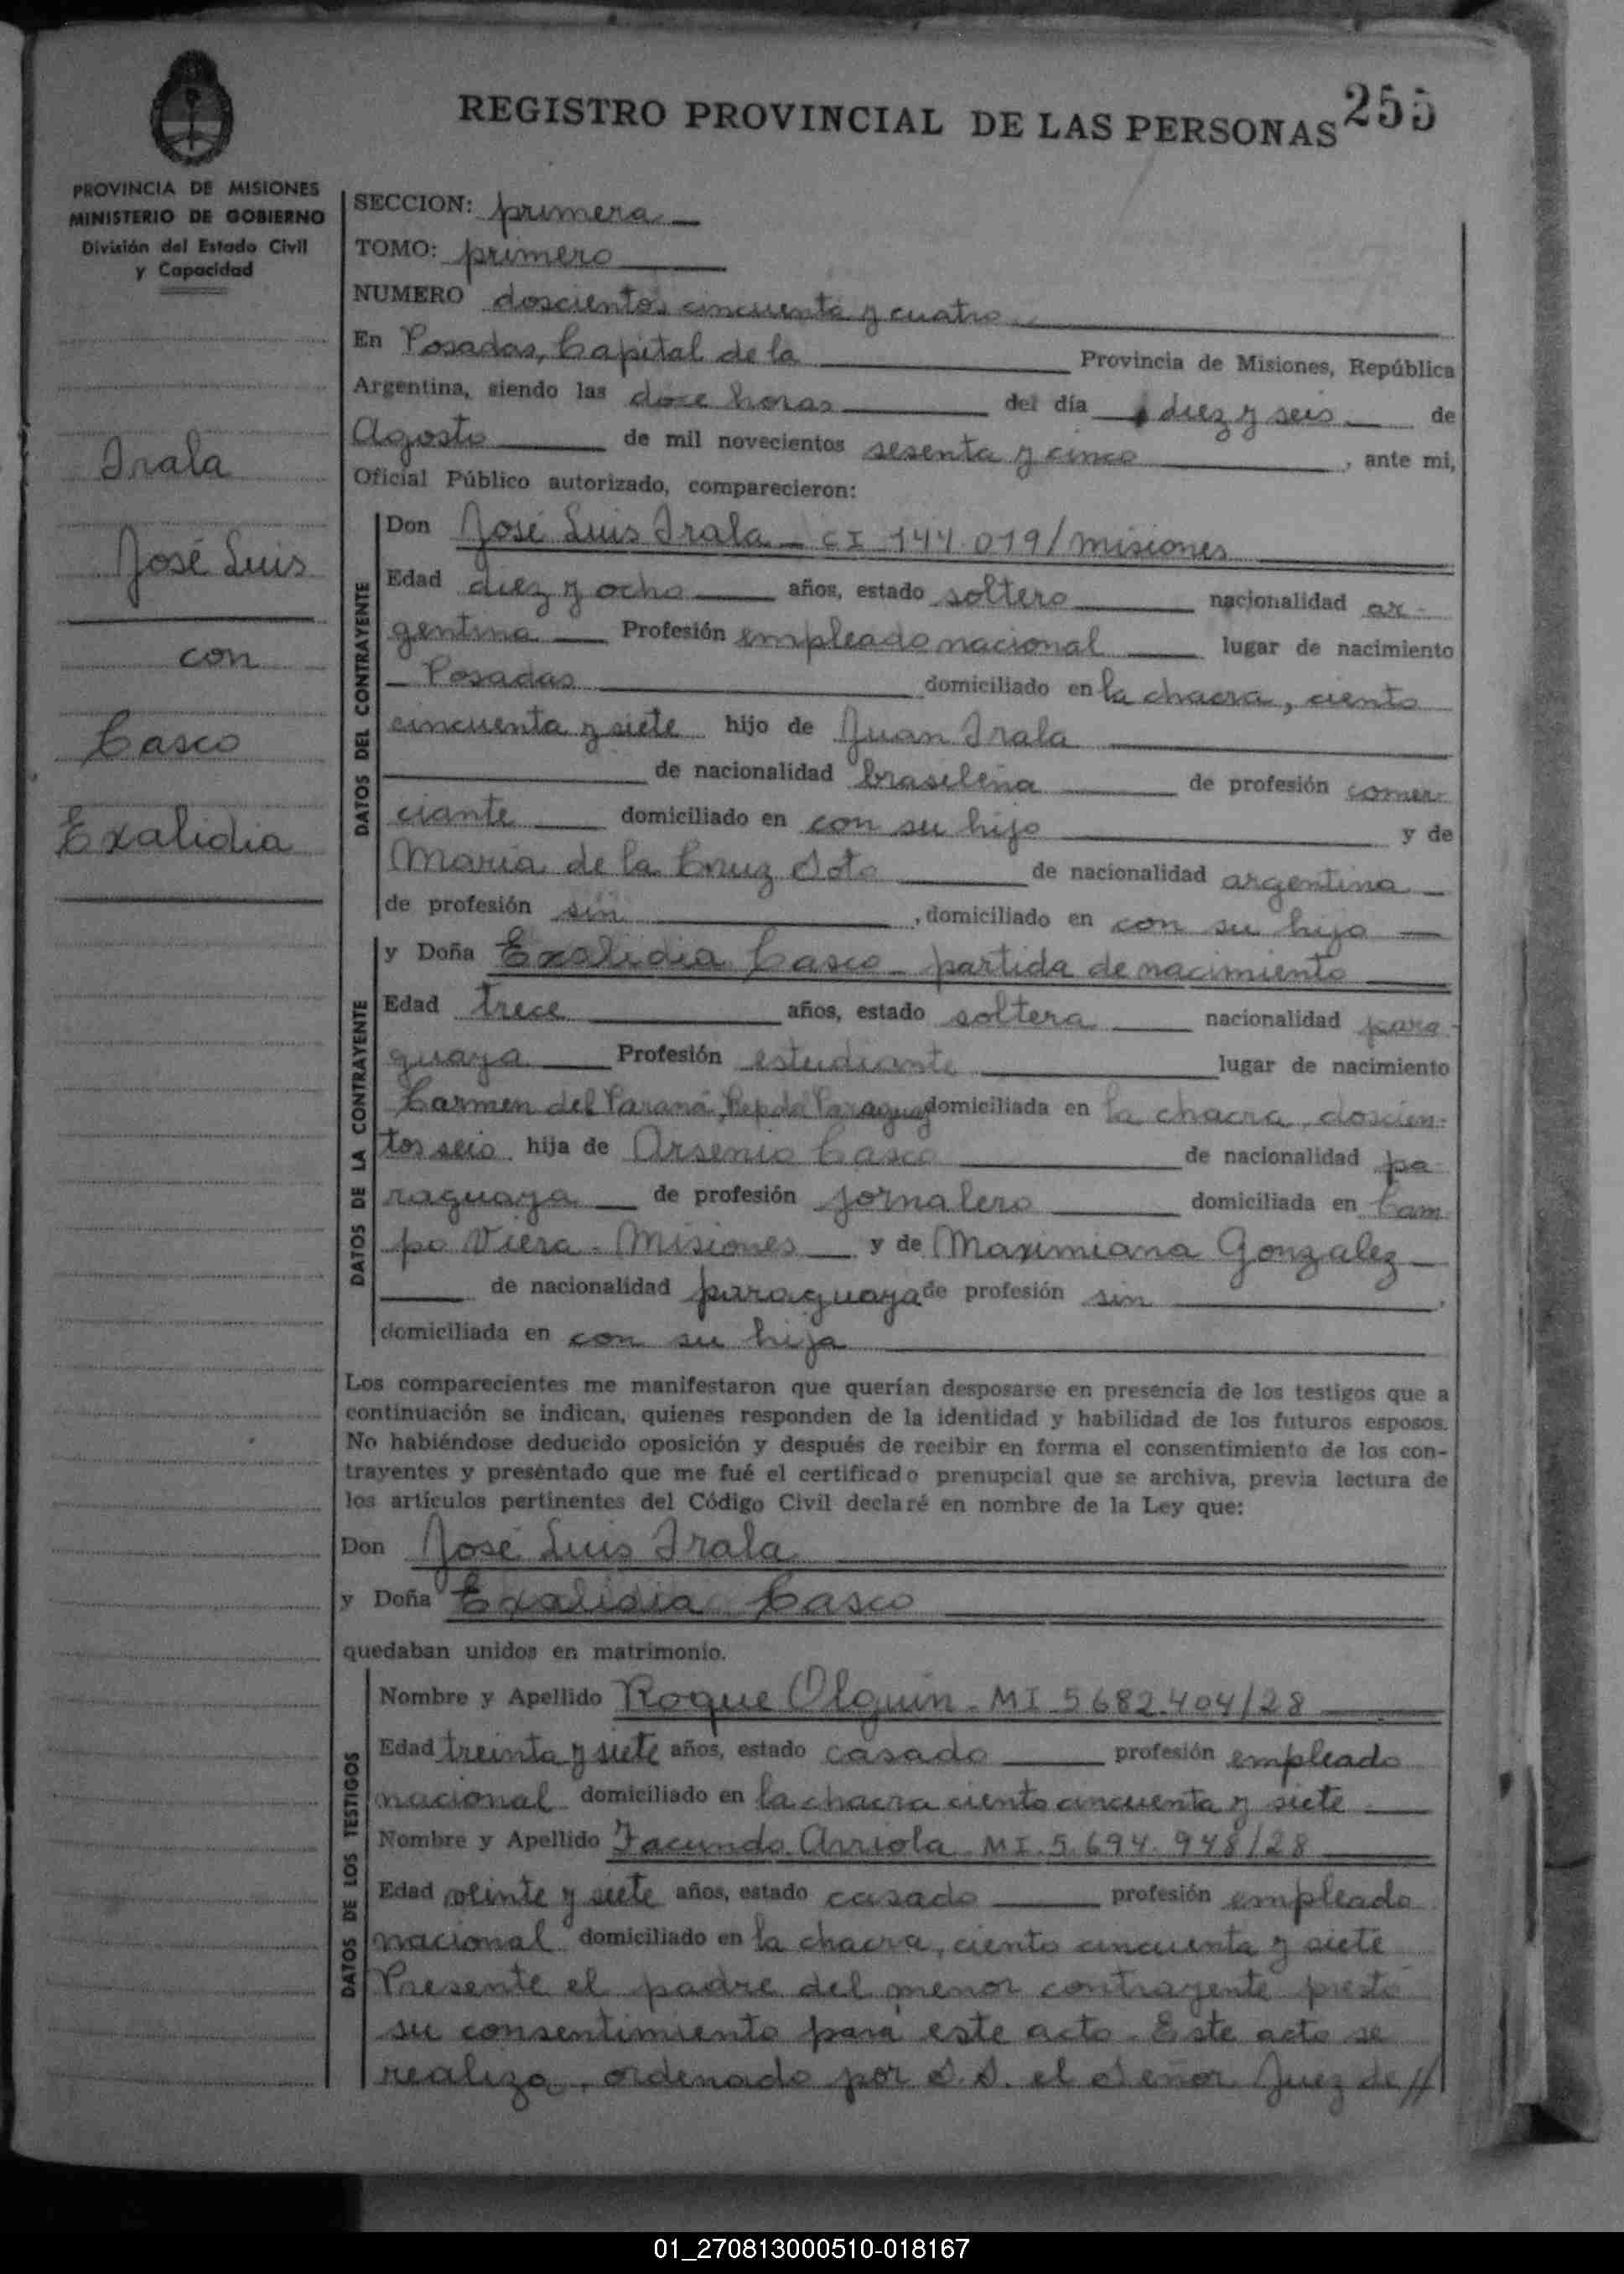 REGISTRO PROVINCIAL DE LAS PERSONAS 255
PROVINCIA DE MISIONES
MINISTERIO DE GOBIERNO
División del Estado Civil
y Capacidad
Irala
José Luis
con
Casco
Exalidia
SECCION: primera
TOMO: primero
NUMERO doscientos cincuenta y cuatro
En Posadas, Capital de la Provincia de Misiones, República
Argentina, siendo las doce horas del día diez y seis de
Agosto de mil novecientos sesenta y cinco, ante mi,
Oficial Público autorizado, comparecieron:
DATOS DEL CONTRAYENTE
Don José Luis Irala - CI 144.019/misiones
Edad diez y ocho años, estado soltero nacionalidad ar-
gentina Profesión empleado nacional lugar de nacimiento
Posadas domiciliado en la chacra, ciento
cincuenta y siete hijo de Juan Irala
de nacionalidad brasileña de profesión comer
ciante domiciliado en con su hijo y de
María de la Cruz Soto de nacionalidad argentina
de profesión sin, domiciliado en con su hijo
DATOS DE LA CONTRAYENTE
y Doña Exalidia Casco - partida de nacimiento
Edad trece años, estado soltera nacionalidad para-
guaya Profesión estudiante lugar de nacimiento
Carmen del Paraná, Rep del Paraguay domiciliada en la chacra, doscien-
tos seis hija de Arsenio Casco de nacionalidad pa-
raguaya de profesión jornalero domiciliada en Cam
po Viera - Misiones y de Maximiana Gonzalez
de nacionalidad paraguaya de profesión sin,
domiciliada en con su hija
Los comparecientes me manifestaron que querían desposarse en presencia de los testigos que a
continuación se indican, quienes responden de la identidad y habilidad de los futuros esposos.
No habiéndose deducido oposición y después de recibir en forma el consentimiento de los con-
trayentes y presentado que me fué el certificado prenupcial que se archiva, previa lectura de
los artículos pertinentes del Código Civil declaré en nombre de la Ley que:
Don José Luis Irala
y Doña Exalidia Casco
quedaban unidos en matrimonio.
DATOS DE LOS TESTIGOS
Nombre y Apellido Roque Olguin - MI 5682.404/28
Edad treinta y siete años, estado casado profesión empleado
nacional domiciliado en la chacra ciento cincuenta y siete
Nombre y Apellido Facundo Arriola MI. 5.694.948/28
Edad veinte y siete años, estado casado profesión empleado
nacional domiciliado en la chacra, ciento cincuenta y siete
Presente el padre del menor contrayente prestó
su consentimiento para este acto. Este acto se
realiza, ordenado por S.S. el Señor Juez de //
01_270813000510-018167